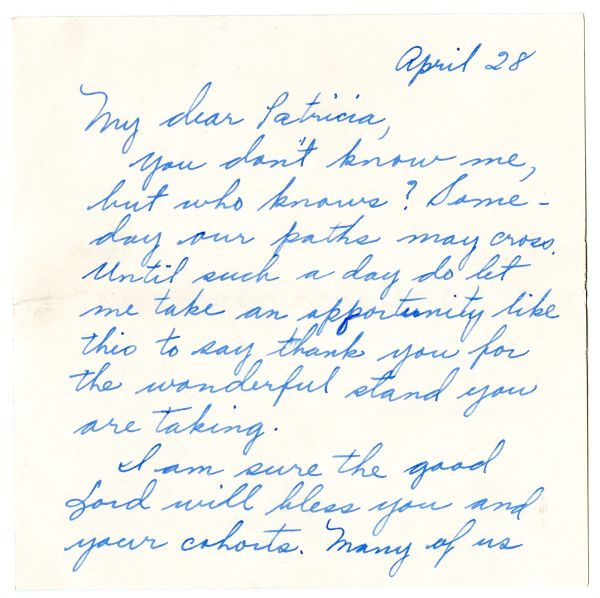 April 28
My dear Patricia,
you don't know me,
but who knows? Some-
day our paths may cross.
Until such a day do let
me take an opportunity like
this to say thank you for
the wonderful stand you
are taking.
I am sure the good
Lord will bless you and
your cohorts. Many of us